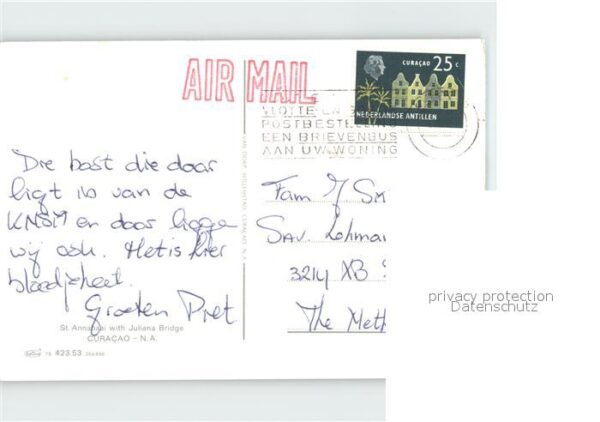 AIR MAIL
CURAÇAO 25 c
NEDERLANDSE ANTILLEN
VLOTTE EN
POSTBESTELLING
EEN BRIEVENBUS
AAN UW WONING
Die boot die daar
ligt is van de
KNSM en daar liggen
wij ook. Het is hier
bloedjeheet.
Groeten Piet
St. Annabaai with Juliana Bridge
CURAÇAO - N.A.
423.53
Fam
Sav. Lohman
3214 XB
The Neth
privacy protection
Datenschutz